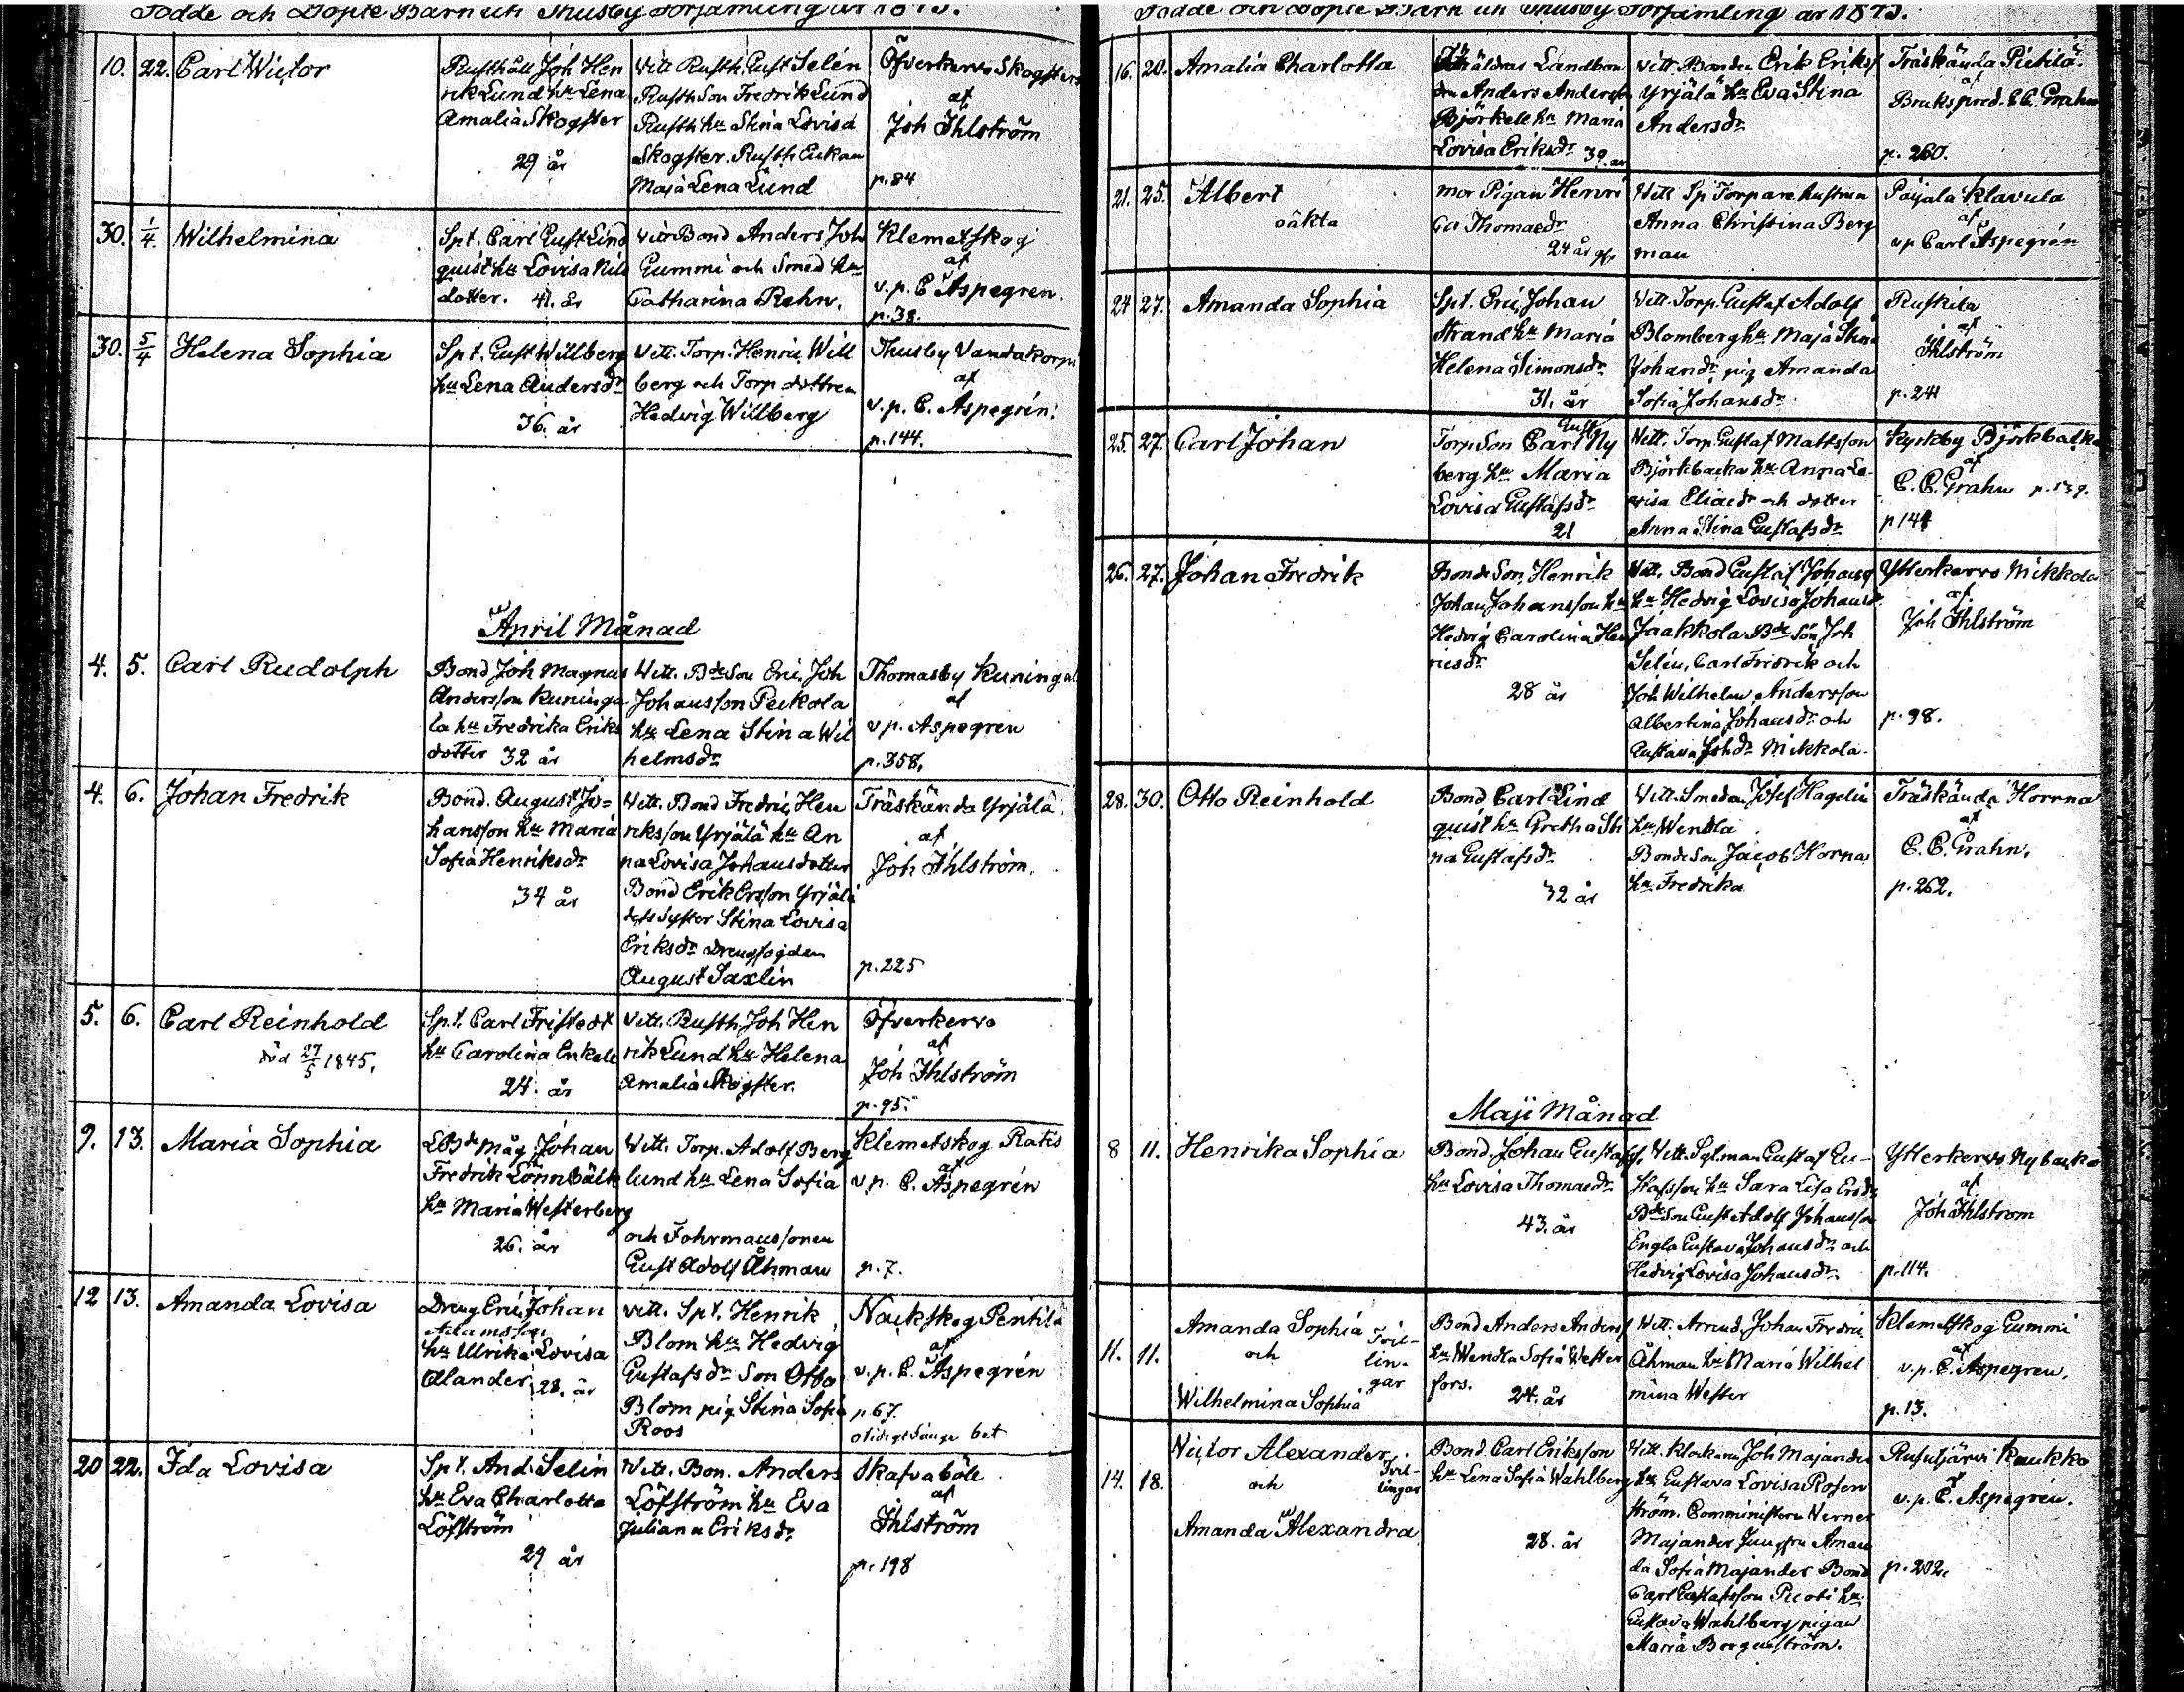 Födde och Döpte Barn uti Thusby Församling år 1845.
10. 22. Carl Wictor
Rusthåll Joh Hen
rik Lund hu Lena
Amalia Skogster
29 år
Vitt Rusth. Gust Selén
Rusth Son Fredrik Lund
Rusth hu Stina Lovisa
Skogster. Rusth Enkan
Maja Lena Lund
Öfverkervo Skogsters
af
Joh Ihlström
p. 84
30. 1/4. Wilhelmina
Spt. Carl Gust Lind
quist hu Lovisa Nils
dotter. 41. år
Vitt Bond Anders Joh
Gummi och Smed hu
Catharina Rehn.
Klemetskog
af
v. p. C Aspegren.
p. 38.
30. 5/4 Helena Sophia
Spt. Gust Willberg
hu Lena Andersdr
36. år
Vitt. Torp. Henric Will
berg och Torp dottren
Hedvig Willberg
Thusby Vandakorpi
af
v. p. C. Aspegrén.
p. 144.
April Månad
4. 5. Carl Rudolph
Bond Joh Magnus
Andersson Kuninga
la hu Fredrika Eriks
dotter 32 år
Vitt. Bde Son Eric Joh
Johansson Peckola
hu Lena Stina Wil
helmsdr
Thomasby Kuningal
af
v p. Aspegren
p. 358.
4. 6. Johan Fredrik
Bond. August Jo=
hansson hu Maria
Sofia Henriksdr
34 år
Vitt. Bond Fredric Hen
riksson Yrjälä hu An
na Lovisa Johansdotter
Bond Erik Ersson Yrjälä
dess syster Stina Lovisa
Eriksdr Drengfogden
August Saxlin
Träskända Yrjälä.
af
Joh Ihlström.
p. 225
5. 6. Carl Reinhold
död 27/5 1845.
Spt. Carl Fristedt
hu Carolina Enkell
24. år
Vitt. Rusth Joh Hen
rik Lund hu Helena
Amalia Skogster.
Öfverkervo
af
Joh Ihlström
p. 95.
9. 13. Maria Sophia
LBde Måg Johan
Fredrik Lönnbäck
hu Maria Westerberg
26. år
Vitt. Torp. Adolf Berg
lund hu Lena Sofia
och Fohrmanssonen
Gust Adolf Åhman
Klemetskog Ratis
af
v p. C. Aspegrén
p. 7.
12 13. Amanda Lovisa
Dreng Eric Johan
Adamsson
hu Ulrika Lovisa
Alander 28. år
Vitt. Spt. Henrik
Blom hu Hedvig
Gustafsdr Son Otto
Blom pig Stina Sofia
Roos
Naukskog Pentilä
af
v. p. C. Aspegrén
p 67.
20 22. Ida Lovisa
Spt. And. Selin
hu Eva Charlotta
Löfström
29 år
Vitt. Bon. Anders
Löfström hu Eva
Juliana Eriksdr
Skafvaböle
af
Ihlström
p. 198
Födde och Döpte Barn uti Thusby Församling år 1845.
16. 20. Amalia Charlotta
Föräldrar Landbon
Anders Andersson
Björkell hu Maria
Lovisa Eriksdr 39. år
Vitt Bonden Erik Eriks
Yrjälä hu Eva Stina
Andersdr
Träskända Pietilä.
af
Brukspred. C. C. Grahn
p. 260.
21. 25. Albert
oäkta
Mor Pigan Henri
ca Thomaedr
24 år gl.
Vitt Sp Torpare hustrun
Anna Christina Berg
man
Paijala Klavula
af
v p Carl Aspegrén
24 27. Amanda Sophia
Spt. Eric Johan
Strand hu Maria
Helena Simonsdr
31. år
Vitt. Torp. Gustaf Adolf
Blomberg hu Maja Stina
Johandr pig Amanda
Sofia Johansdr
Ruskila
af
Ihlström
p. 241
25. 27. Carl Johan
Gust
Torp Son Carl Ny
berg hu Maria
Lovisa Gustafsdr
21
Vitt. Torp Gustaf Mattsson
Björkbacka hu Anna Lo-
visa Eliaedr och dotter
Anna Stina Gustafsdr
Kyrkby Björkbacka
af
C. C. Grahn
p 144
26. 27. Johan Fredrik
Bonde Son Henrik
Johan Johansson hu
Hedvig Carolina Hen
ricsdr
28 år
Vitt. Bond Gustaf Johans
hu Hedvig Lovisa Johansd
Jaakkola Bde Son Joh
Selin, Carl Fridrik och
Joh Wilhelm Andersson
Albertina Johansdr och
Gustava Johdr Mikkola.
Ytterkervo Mikkola
af
Joh Ihlström
p. 98.
28. 30. Otto Reinhold
Bond Carl Lind
quist hu Gretha Sti
na Gustafsdr
32 år
Vitt. Smeden Josef Hagelin
hu Wendla
Bonde Son Jacob Horna
hu Fredrika
Träskända Horrna
af
C. C. Grahn.
p. 262.
Maji Månad
8 11. Henrika Sophia
Bond. Johan Gustafs
hu Lovisa Thomaedr
43. år
Vitt. Sylman Gustaf Gu-
stafsson hu Sara Lisa Ersdr
Bde Son Gust Adolf Johansson
Engla Gustava Johansdr och
Hedvig Lovisa Johansdr
Ytterkervo Nybacka
af
Joh Ihlström
p. 114.
11. 11. Amanda Sophia
och
Wilhelmina Sophia
Tvil-
lin-
gar
Bond Anders Anders
hu Wendla Sofia Wester
fors.
24. år
Vitt. Arrend. Johan Fredric
Åhman hu Maria Wilhel
mina Wester
Klemetskog Gummi
af
v. p. C. Aspegren.
p. 13.
14. 18. Victor Alexander
och
Amanda Alexandra
Tvil-
lingar
Bond. Carl Eriksson
hu Lena Sofia Wahlberg
28. år
Vitt. Klockaren Joh Majander
hu Gustava Lovisa Rosen
ström. Comministern Verner
Majander Jungfru Aman
da Sofia Majander Bond
Carl Gustafsson Picoti hu
Gustava Wahlberg pigan
Maria Borgenström.
Rusutjärvi Kaukko
af
v. p. C. Aspegrén.
p. 202.